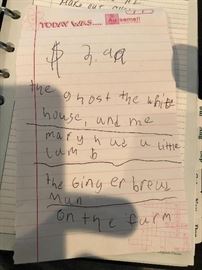 TODAY WAS....
$ 3.99
the ghost the white
house, and me
mary had u little
lum b
the Ging er breud
mun
on the furm